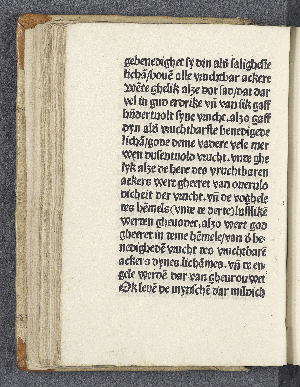 gebenedighet sy din alr̄ salighesste
licha᷉/bouē alle vruchtbar ackere
Wēte ghelik alze dat sad/dat dar
vel in gud erdrike vn̄ van sik gaff
hūdertvolt syne vruche. alzo gaff
dyn alr̄ vruchtbarste benedigede
lichā/gode deme vadere vele mer
wen dusentvolt vrucht. vnte ghe
lyk alze de here des vruchtbaren
ackers wert gheeret van overvlo
dicheit der vrucht. vn̄ de voghele
des hēmels (vnte te der te) lustlikē
werten ghevodet. alzo wert god
gheeret in teme hēmele/van d᷉ be
nedigheden̄ vrucht tes vruchtbarē
ackers dynes lichāmes. vn̄ te en
gele werdē dar van ghevrouwet
Ok levē de mynschē dar mildich